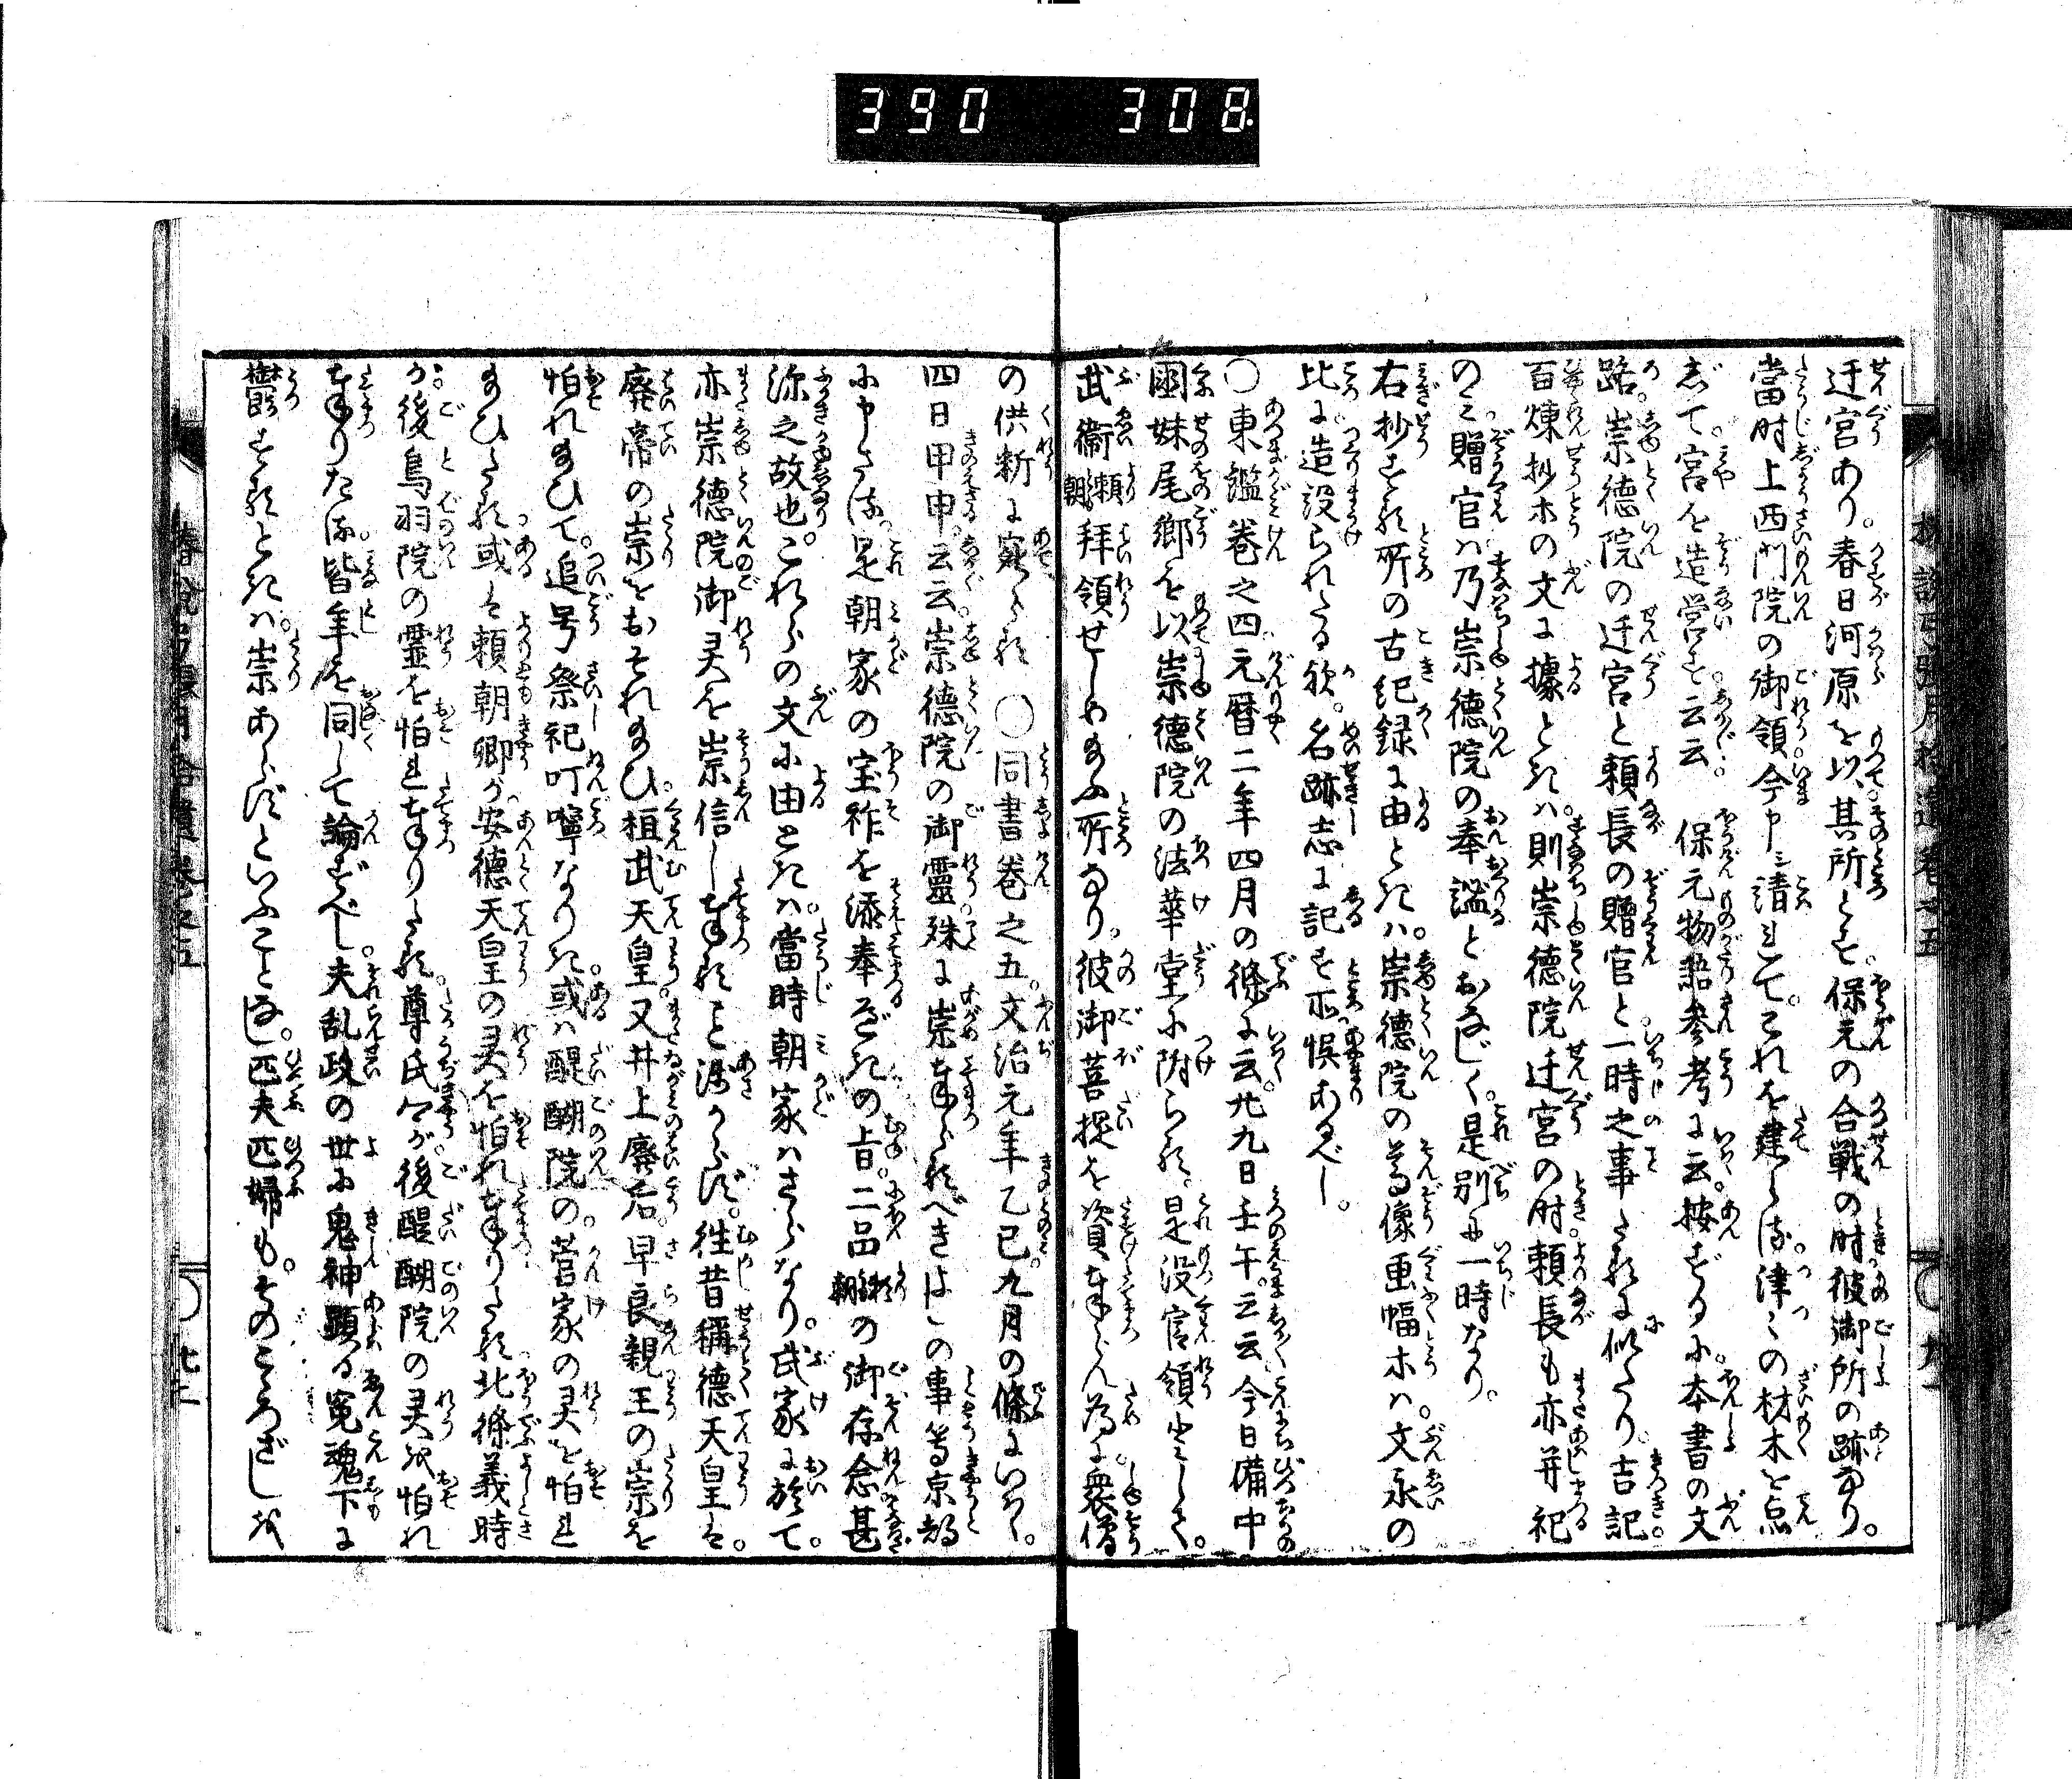 390 308
迁宮あり。春日河原を以其所とす。保元の合戦の時彼御所の跡なり。
當時上西門院の御領今申シ請れて。これを建らる。津々の材木を点
じて宮を造営す云云 保元物語参考に云。按ずるに本書の文
路。崇徳院の迁宮と頼長の贈官と一時之事たるに似たり。吉記
百煉抄ホの文に據ときハ。則崇徳院迁宮の時頼長も亦并祀
のミ贈官ハ乃崇徳院の奉謚とおなじく。是別に一時なり。
右抄する所の古紀録に由ときハ。崇徳院の尊像画幅ホハ。文永の
比に造設られたる歟。名跡志に記す所悞あるべし。
〇東鑑巻之四元暦二年四月の條に云。廿九日壬午。云云今日備中
國妹尾郷を以崇徳院の法華堂に附らる。是没官領として。
武衞頼朝拝領せしめ給ふ所なり。彼御菩提を資奉らん為に。衆僧
の供新に宛らる 〇同書巻之五。文治元年乙巳。九月の條にいはく。
四日甲申。云云。崇徳院の御靈殊に崇奉らるべきは〻の事等京都
に申さる。是朝家の宝祚を添奉ざきの旨。二品頼朝の御存念甚
深之故也。これらの文に由ときハ。當時朝家ハさらなり。武家に於て。
亦崇徳院御灵を崇信し奉ること浅からず。往昔稱徳天皇は。
廃帝の祟をおそれ給ひ。桓武天皇。又井上廃后。早良親王の祟を
怕れ給ひて。追号祭祀叮嚀なりき。或ハ醍醐院の。菅家の灵を怕れ
給ひたる。或は頼朝卿が。安徳天皇の灵を怕れ奉りたる。北條義時
が。後鳥羽院の霊を怕れ奉りたる。尊氏公が。後醍醐院の灵を怕れ
奉りたる。皆年を同して論ずべし。夫乱政の世に鬼神顕る。冤魂下に
欝するときハ。祟あらずといふことなし。匹夫匹婦も。そのこゝろざしを